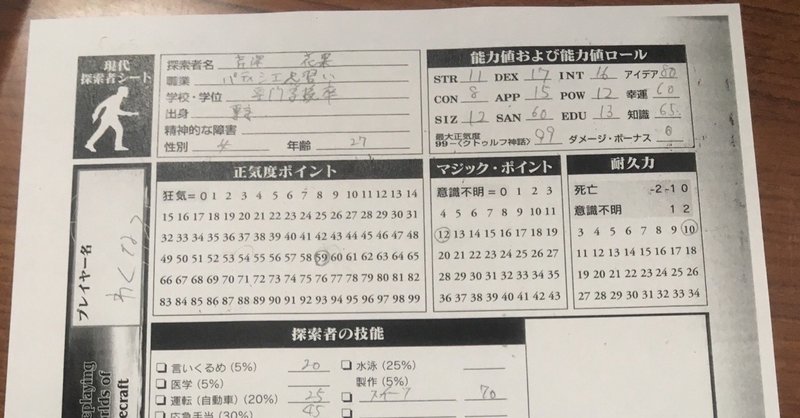 現代
探索者シート
探索者名 花果
職業 パティシエ見習い
学校・学位 専門学校卒
出身 東京
精神的な障害
性別 女 年齢 27
能力値および能力値ロール
STR 11 DEX 17 INT 16 アイデア 80
CON 8 APP 15 POW 12 幸運 60
SIZ 12 SAN 60 EDU 13 知識 65
最大正気度
99-〈クトゥルフ神話〉 99 ダメージ・ボーナス 0
正気度ポイント
狂気=0 1 2 3 4 5 6 7 8 9 10 11 12 13 14
15 16 17 18 19 20 21 22 23 24 25 26 27 28 29 30 31
32 33 34 35 36 37 38 39 40 41 42 43 44 45 46 47 48
49 50 51 52 53 54 55 56 57 58 59 60 61 62 63 64 65
66 67 68 69 70 71 72 73 74 75 76 77 78 79 80 81 82
83 84 85 86 87 88 89 90 91 92 93 94 95 96 97 98 99
マジック・ポイント
意識不明=0 1 2 3
4 5 6 7 8 9 10 11
12 13 14 15 16 17 18 19
20 21 22 23 24 25 26 27
28 29 30 31 32 33 34 35
36 37 38 39 40 41 42 43
耐久力
死亡 -2 -1 0
意識不明 1 2
3 4 5 6 7 8 9 10
11 12 13 14 15 16 17 18
19 20 21 22 23 24 25 26
27 28 29 30 31 32 33 34
プレイヤー名
わくなつ
eplaying
rlds of
ecraft
探索者の技能
言いくるめ (5%) 20
医学 (5%)
運転 (自動車) (20%) 25
応急手当 (30%) 45
水泳 (25%)
製作 (5%)
スイーツ 70